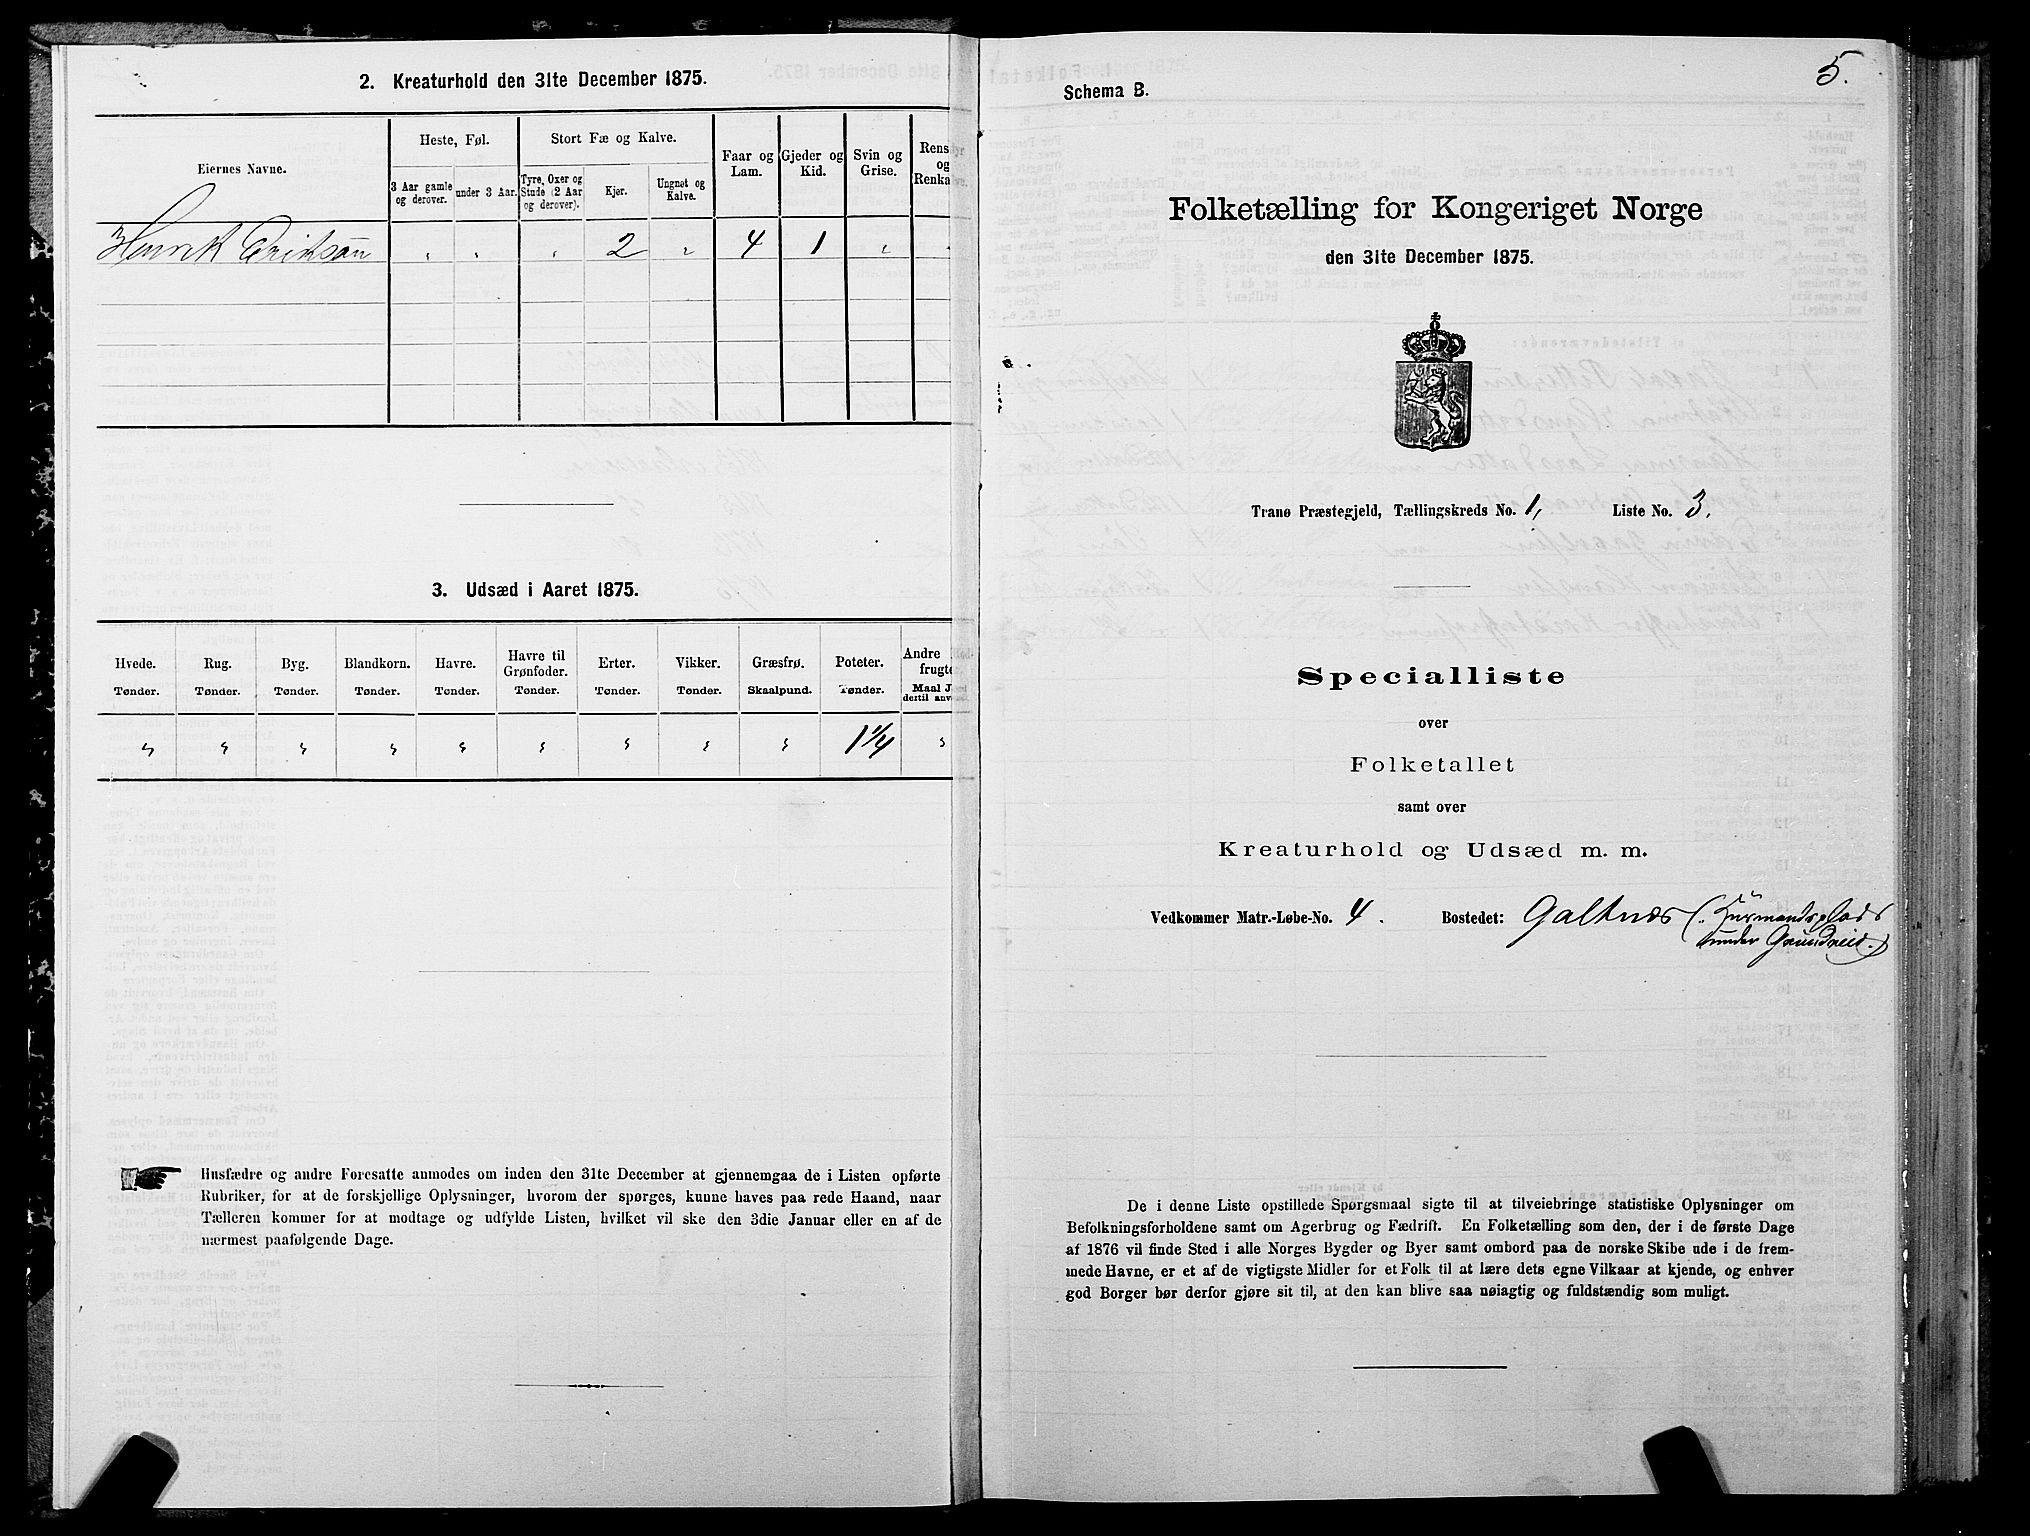 2. Kreaturhold den 31te December 1875.
Eiernes Navne.
Heste, Føl.
Stort Fæ og Kalve.
Faar og Lam.
Gjeder og Kid.
Svin og Grise.
Rens
og
Renka
3 Aar gamle og derover.
under 3 Aar.
Tyre, Oxer og Stude (2 Aar og derover).
Kjør.
Ungnøt og Kalve.
Henrik Eriksøn " " " 2 " 4 1 " "
3. Udsæd i Aaret 1875.
Hvede. Rug. Byg. Blandkorn. Havre. Havre til Grønfoder. Erter. Vikker. Græsfrø. Poteter. Andre frugte
Tønder. Tønder. Tønder. Tønder. Tønder. Tønder. Tønder. Tønder. Skaalpund. Tønder. Maal J
dertil anv
" " " " " " " " " 1 1/4 "
Husfædre og andre Foresatte anmodes om inden den 31te December at gjennemgaa de i Listen opførte
Rubriker, for at de forskjellige Oplysninger, hvorom der spørges, kunne haves paa rede Haand, naar
Tælleren kommer for at modtage og udfylde Listen, hvilket vil ske den 3die Januar eller en af de
nærmest paafølgende Dage.
5.
Schema B.
Folketælling for Kongeriget Norge
den 31te December 1875.
Tranø Præstegjeld, Tællingskreds No. 1, Liste No. 3.
Specialliste
over
Folketallet
samt over
Kreaturhold og Udsæd m. m.
Vedkommer Matr.-Løbe-No. 4. Bostedet: Galtnæs (: Husmandsplads
under Grundreid.)
De i denne Liste opstillede Spørgsmaal sigte til at tilveiebringe statistiske Oplysninger om
Befolkningsforholdene samt om Agerbrug og Fædrift. En Folketælling som den, der i de første Dage
af 1876 vil finde Sted i alle Norges Bygder og Byer samt ombord paa de norske Skibe ude i de frem-
mede Havne, er et af de vigtigste Midler for et Folk til at lære dets egne Vilkaar at kjende, og enhver
god Borger bør derfor gjøre sit til, at den kan blive saa nøiagtig og fuldstændig som muligt.